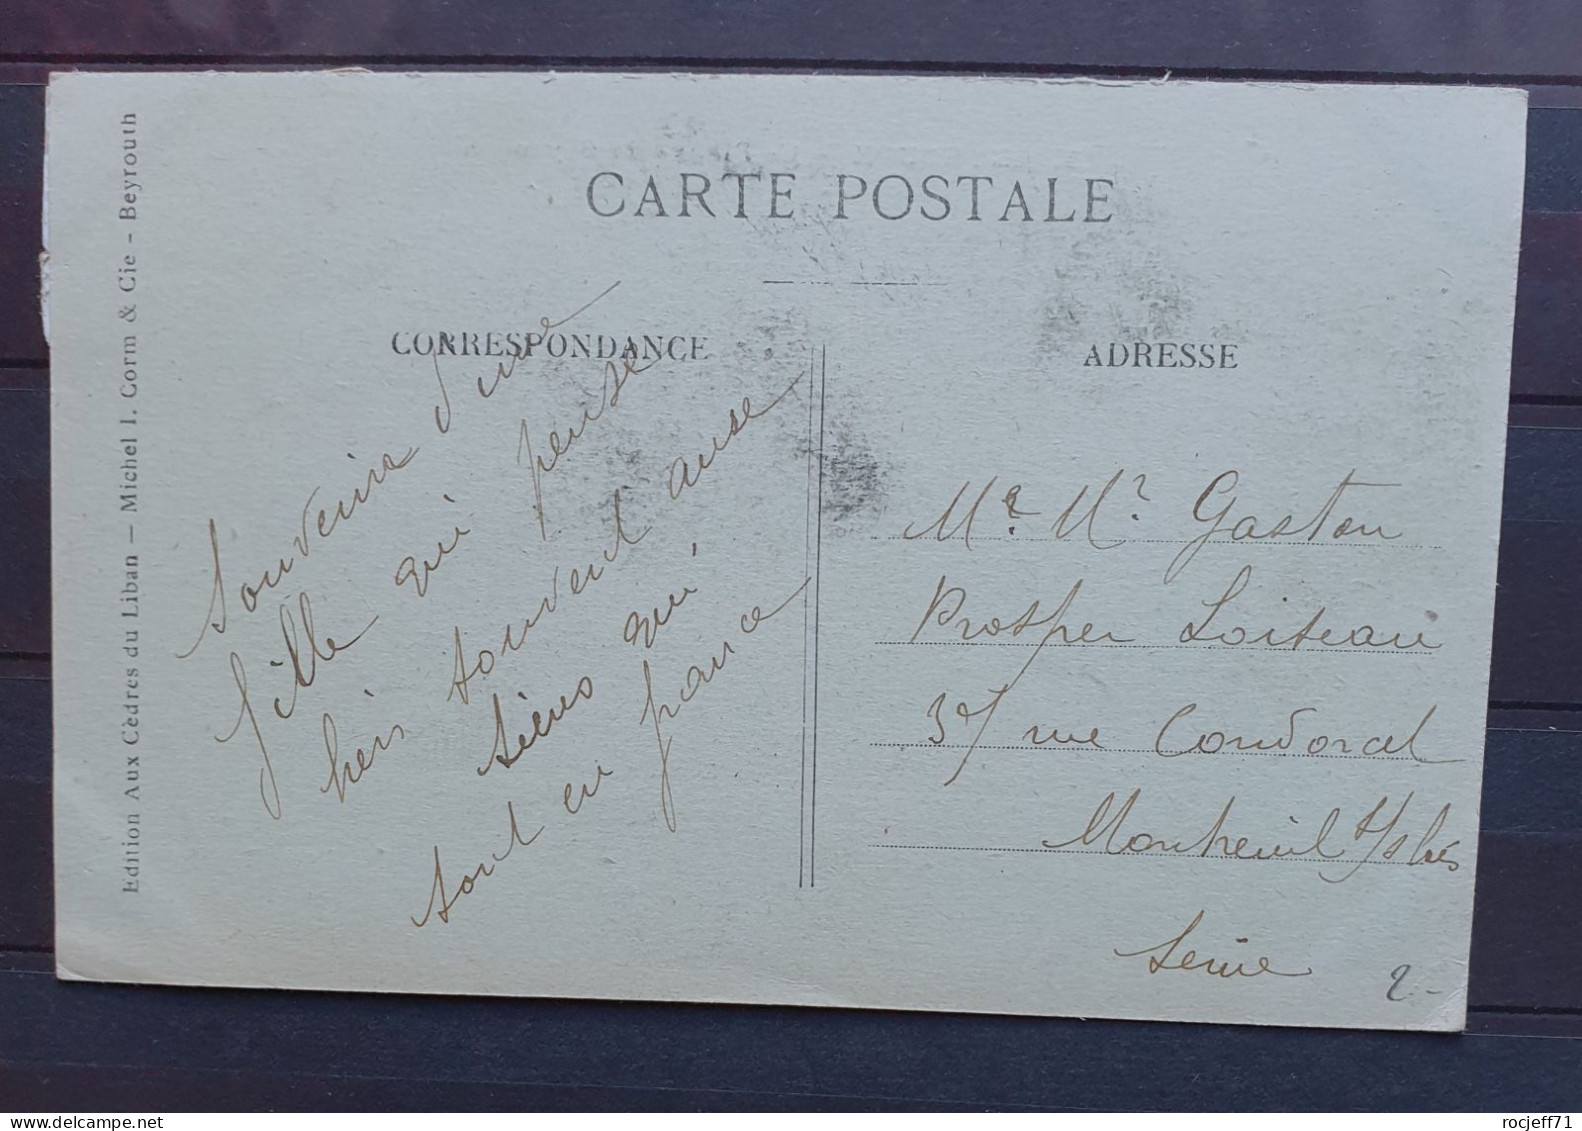 CARTE POSTALE
CORRESPONDANCE
ADRESSE
Edition Aux Cèdres du Liban — Michel I. Corm & Cie - Beyrouth
Souvenir d'une
fille qui pense
heis souvent ause
siens qui
sont en france
Me. Mr Gaston
Prosper Loiseau
37 rue Condorcet
Montreuil s/s bois
Seine
2-
rocjeff71